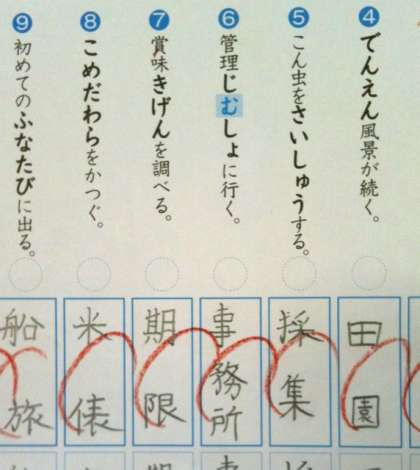 ④ でんえん風景が続く。
田園
⑤ こん虫をさいしゅうする。
採集
⑥ 管理じむしょに行く。
事務所
⑦ 賞味きげんを調べる。
期限
⑧ こめだわらをかつぐ。
米俵
⑨ 初めてのふなたびに出る。
船旅